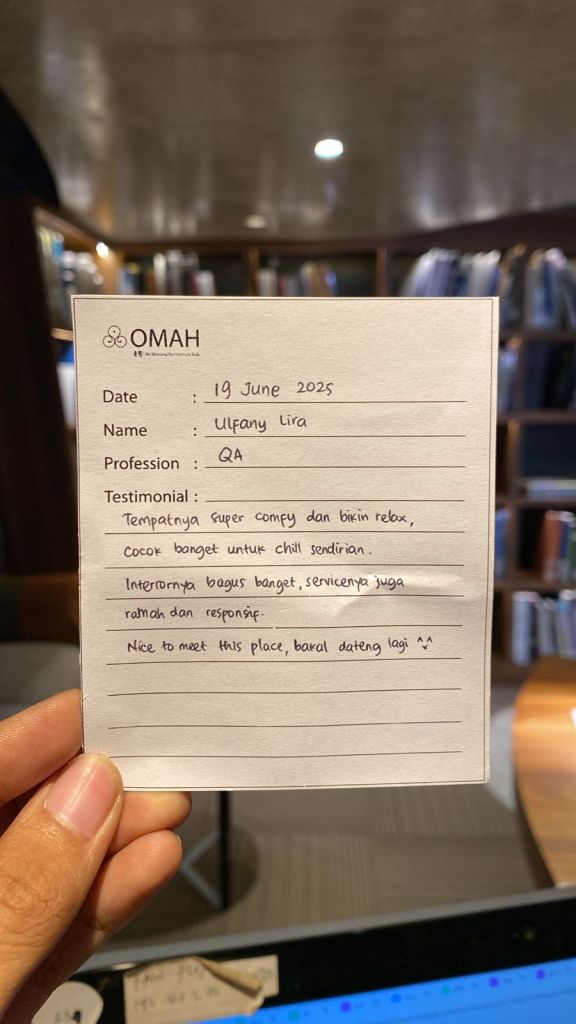 OMAH
Date : 19 June 2025
Name : Ulfany Lira
Profession : QA
Testimonial :
Tempatnya super comfy dan bikin relax,
cocok banget untuk chill sendirian.
Interiornya bagus banget, servicenya juga
ramah dan responsif.
Nice to meet this place, bakal dateng lagi ^^